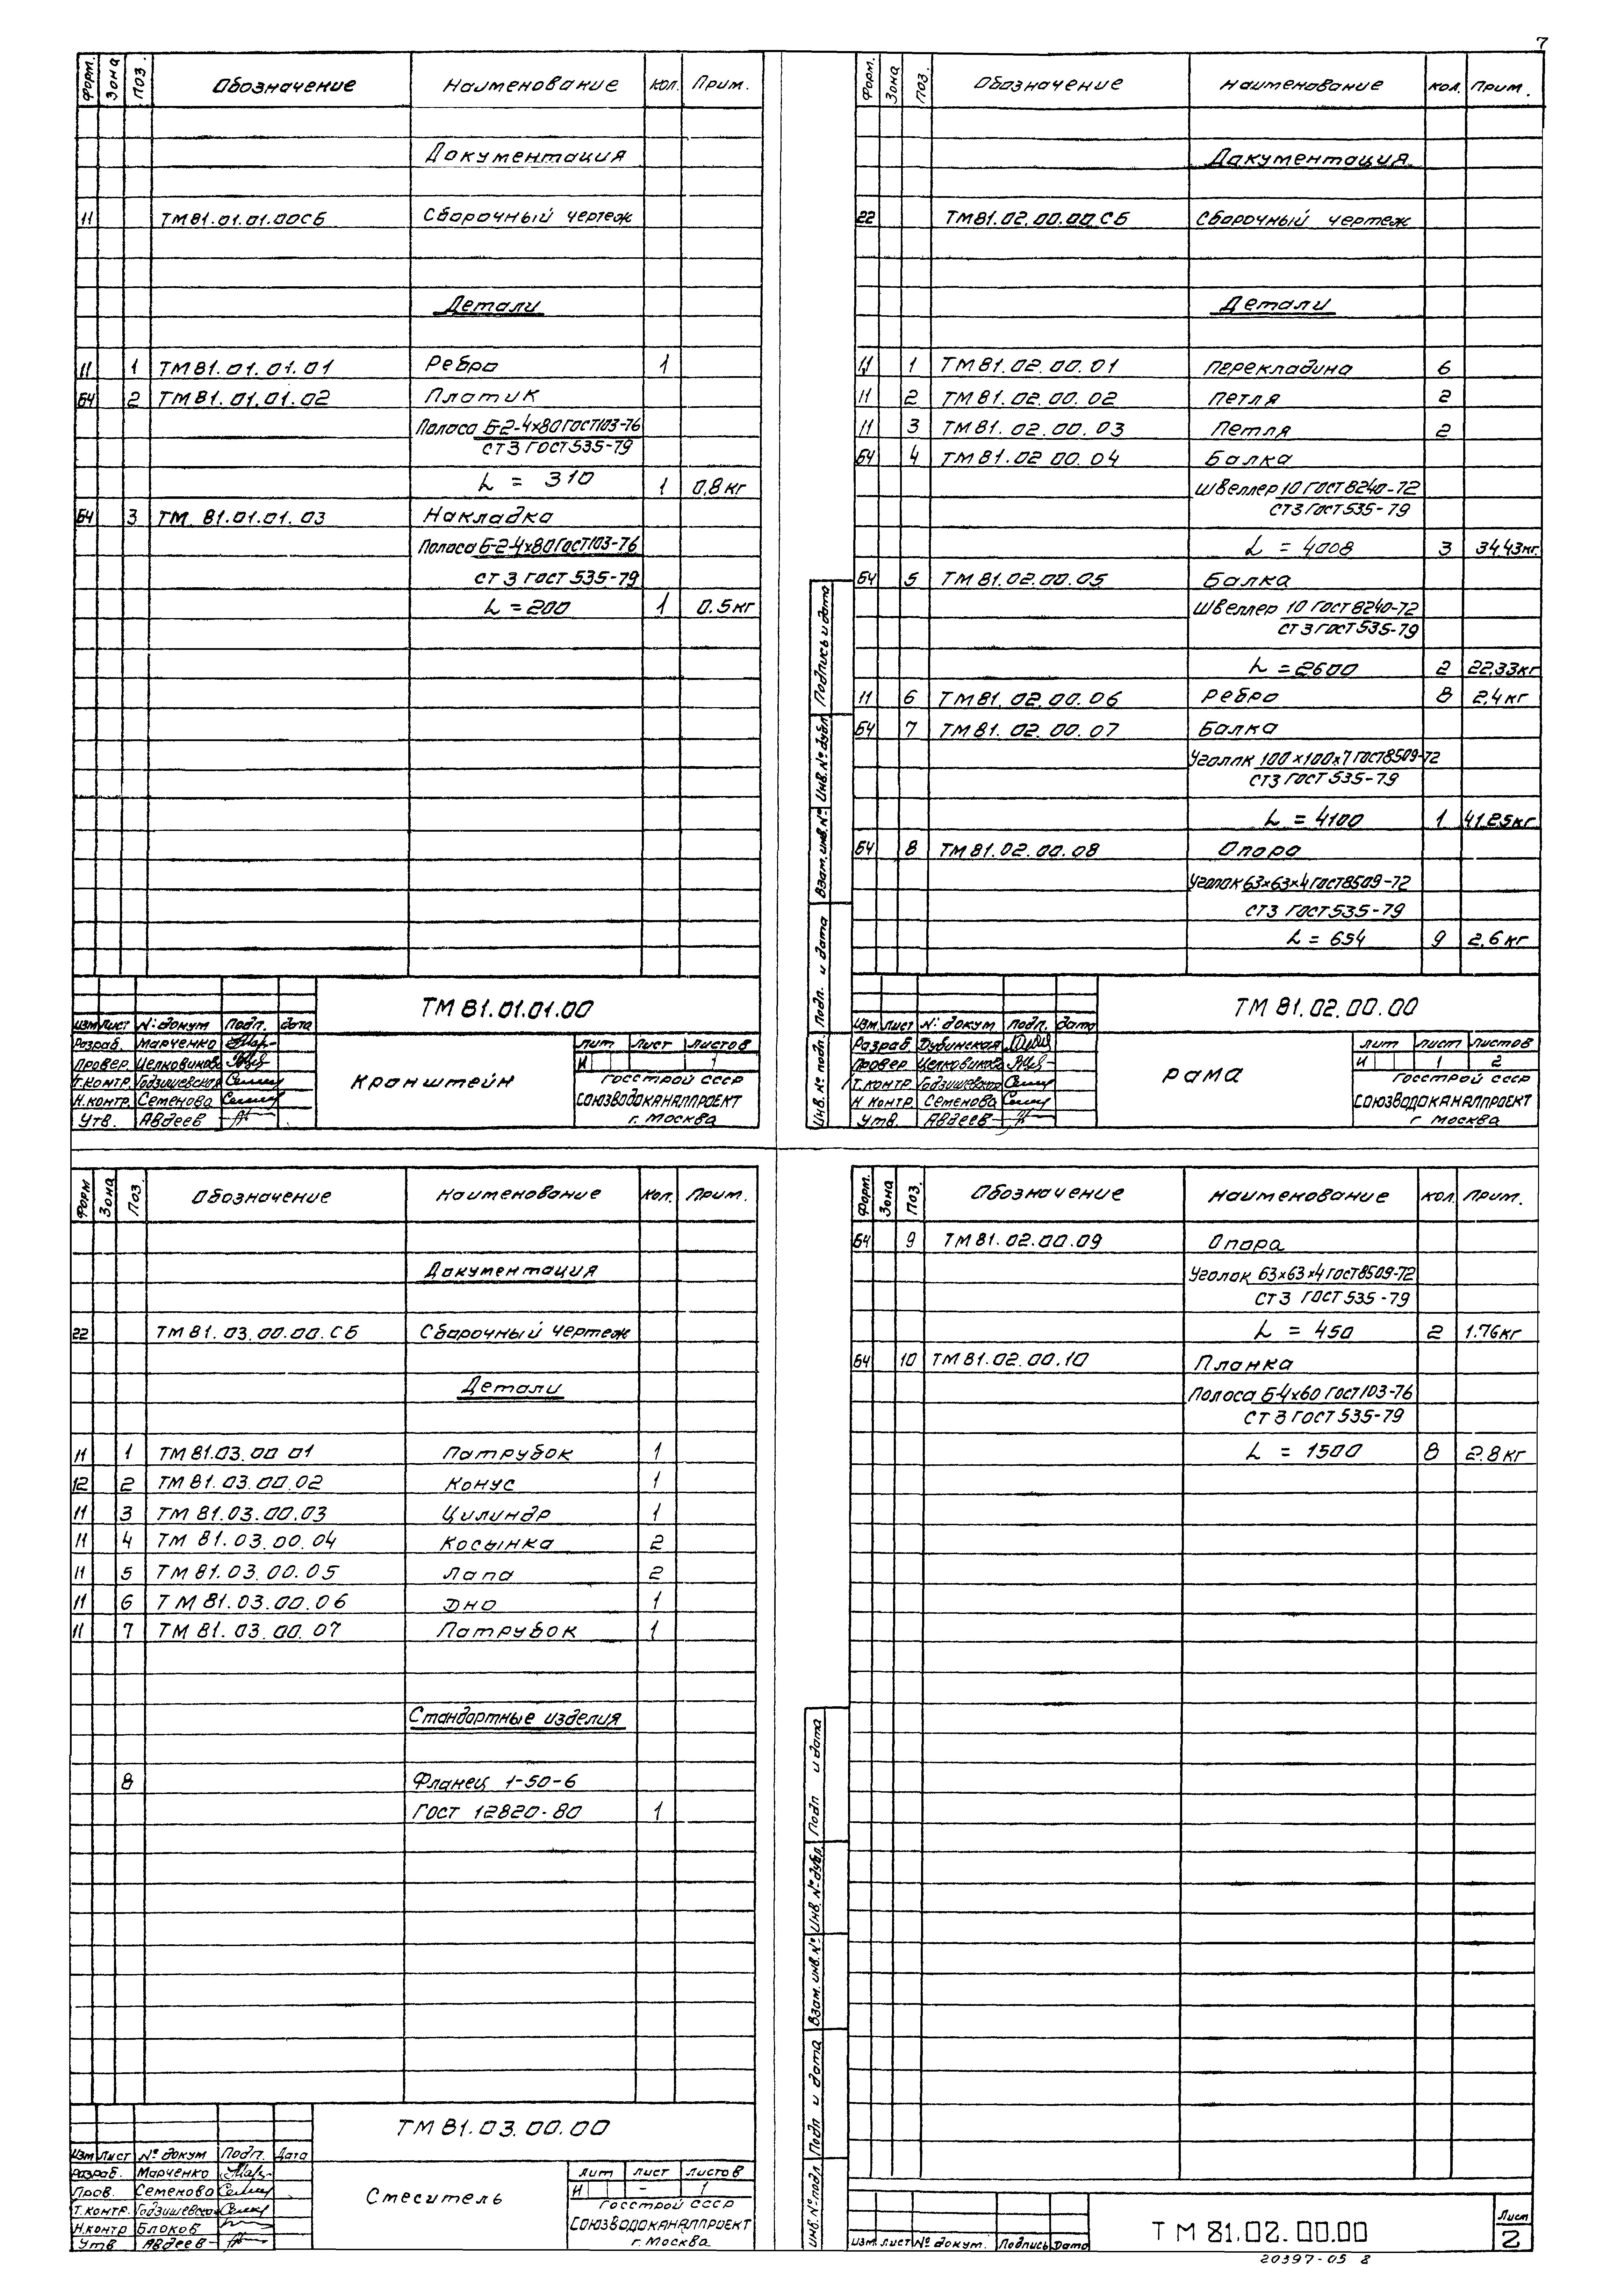 7
Форм. Зона Поз. Обозначение Наименование Кол. Прим.
Документация
11 ТМ81.01.01.00СБ Сборочный чертеж
Детали
11 1 ТМ81.01.01.01 Ребро 1
БЧ 2 ТМ81.01.01.02 Платик
Полоса Б-2-4х80 ГОСТ103-76
СТ3 ГОСТ535-79
L = 310 1 0,8кг
БЧ 3 ТМ 81.01.01.03 Накладка
Полоса Б-2-4х80 ГОСТ103-76
СТ 3 ГОСТ 535-79
L = 200 1 0.5кг
ТМ 81.01.01.00
Изм Лист № докум Подп. Дата
Разраб. Марченко
Провер. Целковикова
Т.контр. Годзишевская
Н.контр. Семенова
Утв. Авдеев
Кранштейн
Лит Лист Листов
И 1
Госстрой СССР
СОЮЗВОДОКАНАЛПРОЕКТ
г. Москва
Форм. Зона Поз. Обозначение Наименование Кол. Прим.
Документация
22 ТМ81.02.00.00.СБ Сборочный чертеж
Детали
11 1 ТМ81.02.00.01 Перекладина 6
11 2 ТМ81.02.00.02 Петля 2
11 3 ТМ81.02.00.03 Петля 2
БЧ 4 ТМ81.02 00.04 Балка
Швеллер 10 ГОСТ8240-72
СТ3 ГОСТ535-79
L = 4008 3 34,43кг.
БЧ 5 ТМ81.02.00.05 Балка
Швеллер 10 ГОСТ8240-72
СТ3 ГОСТ535-79
L = 2600 2 22,33кг
11 6 ТМ81.02.00.06 Ребро 8 2,4кг
БЧ 7 ТМ81.02.00.07 Балка
Уголок 100х100х7 ГОСТ8509-72
СТ3 ГОСТ535-79
L = 4100 1 41.25кг
БЧ 8 ТМ81.02.00.08 Опора
Уголок 63х63х4 ГОСТ8509-72
СТ3 ГОСТ535-79
L = 654 9 2,6кг
Подпись и дата
Инв. № дубл
Взам. инв. №
Подп. и дата
Инв. № подл.
ТМ 81.02.00.00
Изм. Лист № докум Подп. Дата
Разраб. Дубинская
Провер Целковикова
Т.контр Годзишевская
Н контр. Семенова
Утв. Авдеев
Рама
Лит Лист Листов
И 1 2
Госстрой СССР
СОЮЗВОДОКАНАЛПРОЕКТ
г Москва
Форм Зона Поз. Обозначение Наименование Кол. Прим.
Документация
22 ТМ81.03.00.00.СБ Сборочный чертеж
Детали
11 1 ТМ81.03.00 01 Патрубок 1
12 2 ТМ81.03.00.02 Конус 1
11 3 ТМ 81.03.00.03 Цилиндр 1
11 4 ТМ 81.03.00.04 Косынка 2
11 5 ТМ 81.03.00.05 Лапа 2
11 6 ТМ 81.03.00.06 Дно 1
11 7 ТМ 81.03.00.07 Патрубок 1
Стандартные изделия
8 Фланец 1-50-6
ГОСТ 12820-80 1
ТМ 81.03.00.00
Изм Лист № докум Подп. Дата
Разраб. Марченко
Пров. Семенова
Т.контр. Годзишевская
Н.контр Блоков
Утв Авдеев
Смеситель
Лит Лист Листов
И - 1
Госстрой СССР
СОЮЗВОДОКАНАЛПРОЕКТ
г. Москва
Форм. Зона Поз. Обозначение Наименование Кол. Прим.
БЧ 9 ТМ81.02.00.09 Опора
Уголок 63х63х4 ГОСТ8509-72
СТ3 ГОСТ535-79
L = 450 2 1.76кг
БЧ 10 ТМ81.02.00.10 Планка
Полоса Б-4х60 ГОСТ103-76
СТ 3 ГОСТ535-79
L = 1500 8 2.8кг
Подп и дата
Инв. № дубл
Взам. инв. №
Подп и дата
Инв. № подл.
Изм. Лист № докум. Подпись Дата
ТМ 81.02.00.00
Лист
2
20397-05 8